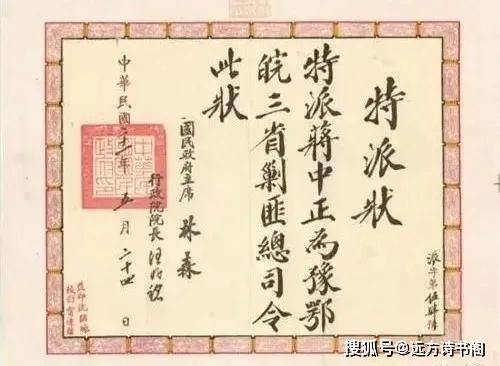 派字第伍肆號
特派狀
特派蔣中正為豫鄂
皖三省剿匪總司令
此狀
國民政府主席 林森
行政院院長 汪兆銘
中華民國二十一年五月二十四日
搜狐号@远方诗书阁